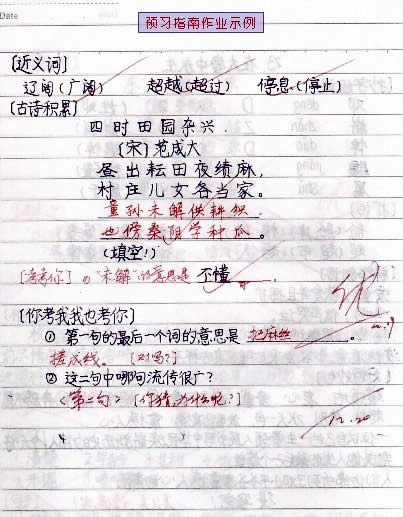 Date
预习指南作业示例
[近义词]
辽阔(广阔) 超越(超过) 停息(停止)
[古诗积累]
四时田园杂兴.
[宋]范成大
昼出耘田夜绩麻,
村庄儿女各当家。
童孙未解供耕织,
也傍桑阴学种瓜。
(填空!)
[考考你] ① "未解"的意思是 不懂
[你考我我也考你]
优
① 第一句的最后一个词的意思是 把麻丝。
搓成线. [对吗?]
② 这二句中哪句流传很广?
<第二句> [你猜,为什么呢?]
12.20